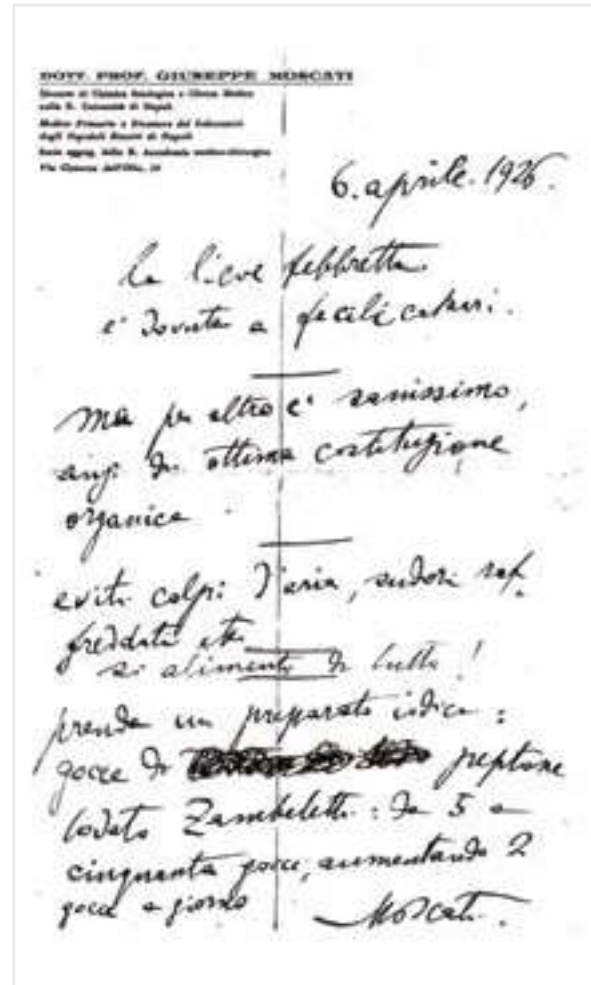 DOTT. PROF. GIUSEPPE MOSCATI
Docente di Chimica fisiologica e Clinica Medica
nella R. Università di Napoli
Medico Primario e Direttore del Laboratorio
degli Ospedali Riuniti di Napoli
Socio aggreg. della R. Accademia medico-chirurgica
Via Cisterna dell'Olio, 10
6. aprile. 1926.
la lieve febbretta
e' dovuta a facili catarri.
ma per altro e' sanissimo,
anzi di ottima costituzione
organica
eviti colpi d'aria, sudori raf
freddati etc
si alimenti di tutto!
prenda un preparato iodico:
gocce di peptone
iodato Zambeletti: da 5 a
cinquanta gocce, aumentando 2
gocce a giorno
Moscati.